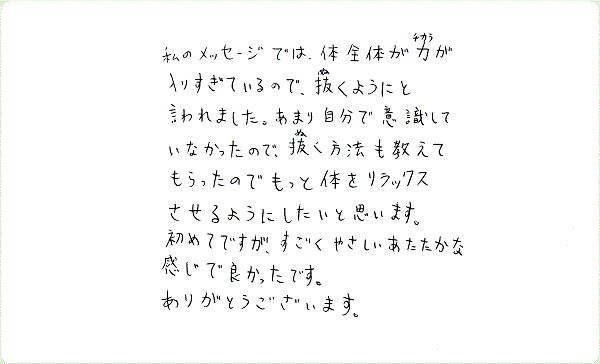 私のメッセージでは、体全体がチカラ力が
入りすぎているので、ぬ抜くようにと
言われました。あまり自分で意識して
いなかったので、ぬ抜く方法も教えて
もらったのでもっと体をリラックス
させるようにしたいと思います。
初めてですが、すごくやさしいあたたかな
感じで良かったです。
ありがとうございます。